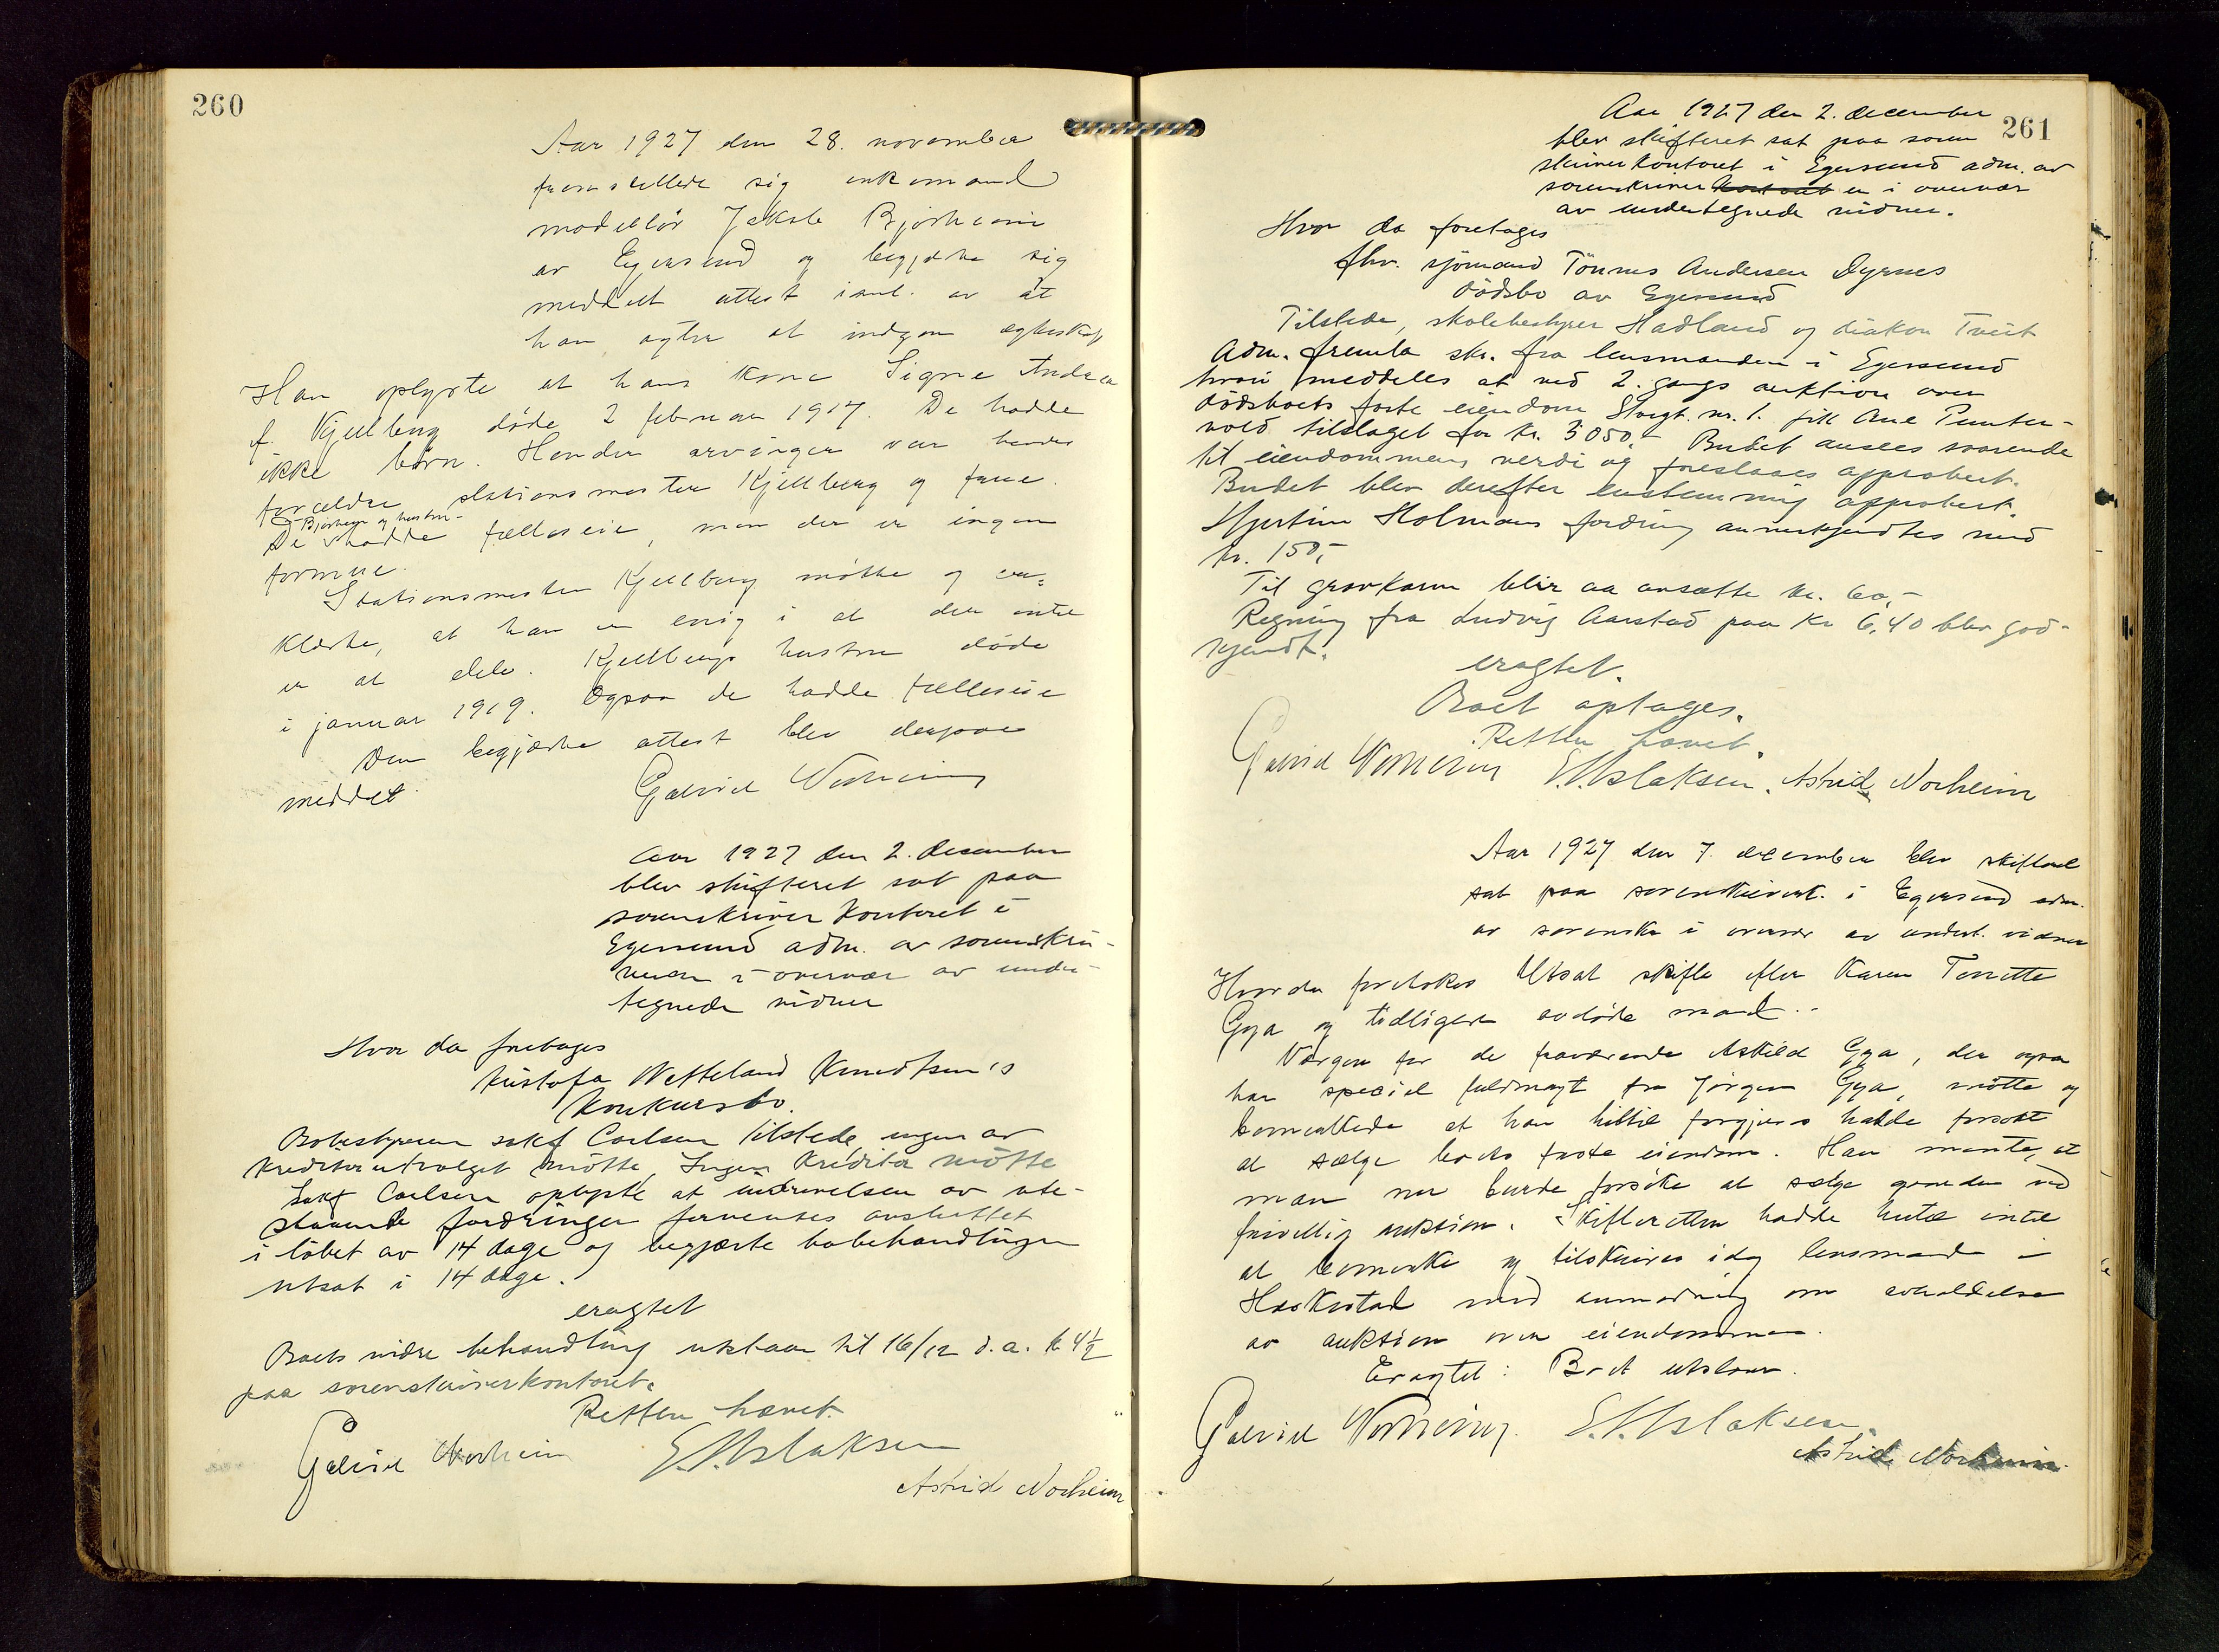 260
Aar 1927 den 28. november
fremstillede sig enkemand
modellör Jakob Bjórheim
av Egersund og begjærte sig
meddelt attest isml. av at
han agter at indgaa egteskap
Han oplyste at hans kone Signe Andrea
f. Kjellberg døde 2 februar 1917. De hadde
ikke børn. Hendes arvinger var hendes
forældre stationsmester Kjellberg og frue.
Bjorheim og hustru
De hadde fælleseie, men der er ingen
formue.
Stationsmester Kjellberg møtte og er-
klærte, at han er enig i at der intet
er at dele. Kjellbergs hustru døde
i januar 1919. Ogsaa de hadde fælleseie
Den begjærte attest blev derpaa
meddelt.
Gabriel
Aar 1927 den 2. december
blev skifteret sat paa
sorenskriverkontoret i
Egersund adm. av sorenskri-
veren i overvær av under-
tegnede vidner
Hvor da foretages
Kristofa Netteland Knudtsen's
Konkursbo.
Bobestyreren sakf Carlsen tilstede, ingen av
kreditorutvalget møtte, Ingen kreditor møtte
Sakf Carlsen oplyste at inddrivelsen av ute-
staaende fordringer forventes avsluttet
i löbet av 14 dage og begjærte bobehandlingen
utsat i 14 dage.
eragtet
Boets vidre behandling utstaar til 16/12 d.a. kl 4½
paa sorenskriverkontoret.
Retten hævet.
Gabriel E. Aslaksen
Astrid Norheim
261
Aar 1927 den 2. december
blev skifteret sat paa soren
skriverkontoret i Egersund adm. av
sorenskriver kontoret en i overvær
av undertegnede vidner.
Hvor da foretages
fhv. sjömand Tönnes Andersen Dyrnes
dödsbo av Egersund
Tilstede, skolebestyrer Hadland og diakon Tveit
Adm. fremla skr. fra lensmanden i Egersund
hvori meddeles at ved 2. gangs auktion over
dödsboets faste eiendom Strgt. nr. 1. fik Ane Punter-
vold tilslaget for kr. 3050.- Budet ansees svarende
til eiendommens verdi og foreslaaes approbert.
Budet blev derefter enstemmig approbert.
Hjertine Holmens fordring annerkjendtes med
kr. 150,-
Til gravkarm blir aa avsætte kr. 60,-
Regning fra Ludvig Aarstad paa kr 6,40 blev god-
kjendt.
eragtet.
Boet optages.
Retten hævet.
Gabriel E. Aslaksen. Astrid Norheim
Aar 1927 den 7. december blev skifteret
sat paa sorenskriverk. i Egersund adm.
av sorenskr i overvær av undert. vidner
Hvor da foretokes Utsat skifte efter Karen Tonette
Gya og tidligere avdöde mand.
Værgen for de fraværende Askild Gya, der ogsaa
har speciel fuldmagt fra Jörgen Gya, mötte og
bemerkede at han hittil forgjæves hadde forsøkt
at sælge boets faste eiendom. Han mente, at
man nu burde forsöke at sælge gaarden ved
frivillig auktion. Skifteretten hadde hertil intet
at bemerke og tilskrives idag lensmanden i
Heskestad med anmodning om avholdelse
av auktion over eiendommen.
Eragtet: Boet utstaar.
Gabriel E. Aslaksen.
Astrid Norheim.